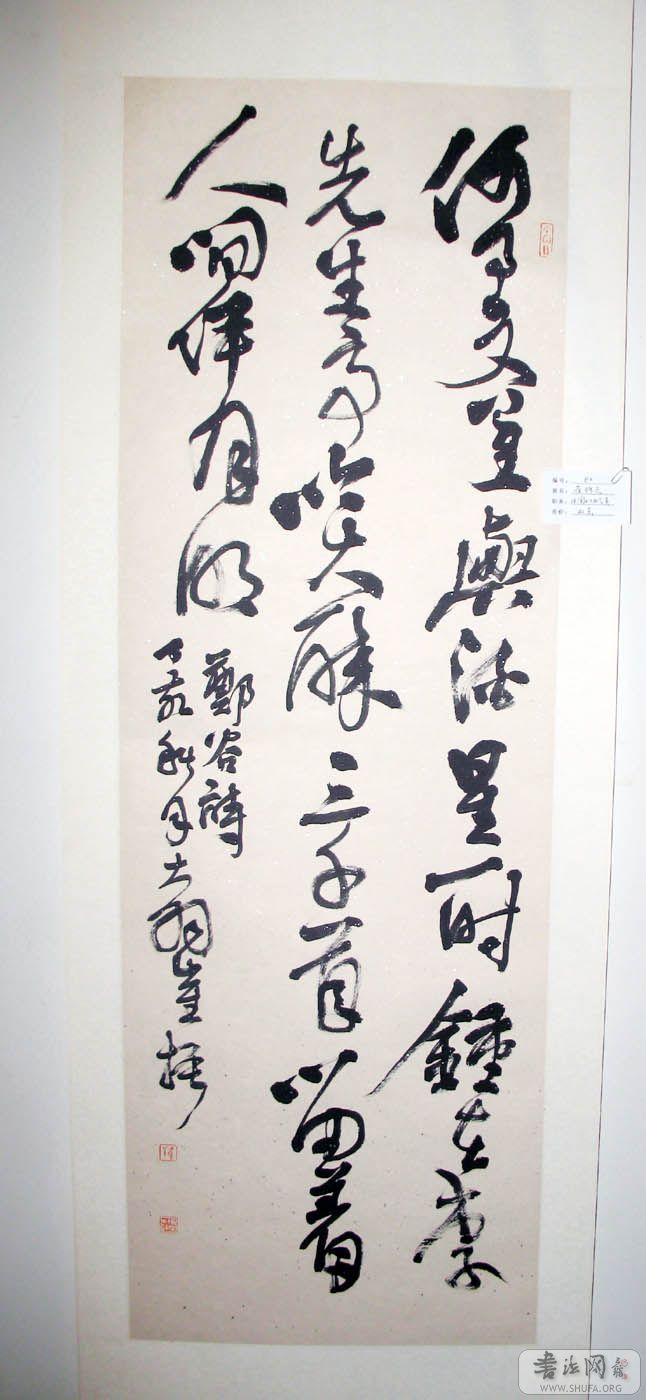 何事文星與酒星一时鍾在李
先生高吟大醉三千首留着
人間伴月明
鄭谷詩
丁亥秋月
编号：
姓名：
書法网
WWW.SHUFA.ORG